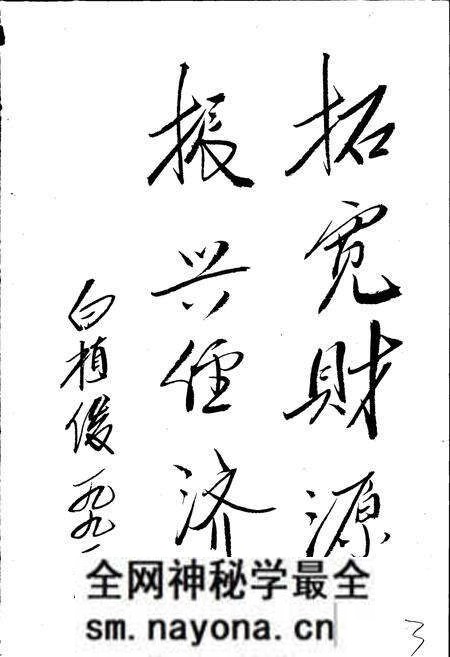 拓宽財源
振兴经济
白植俊 一九九一
全网神秘学最全
sm.nayona.cn
3